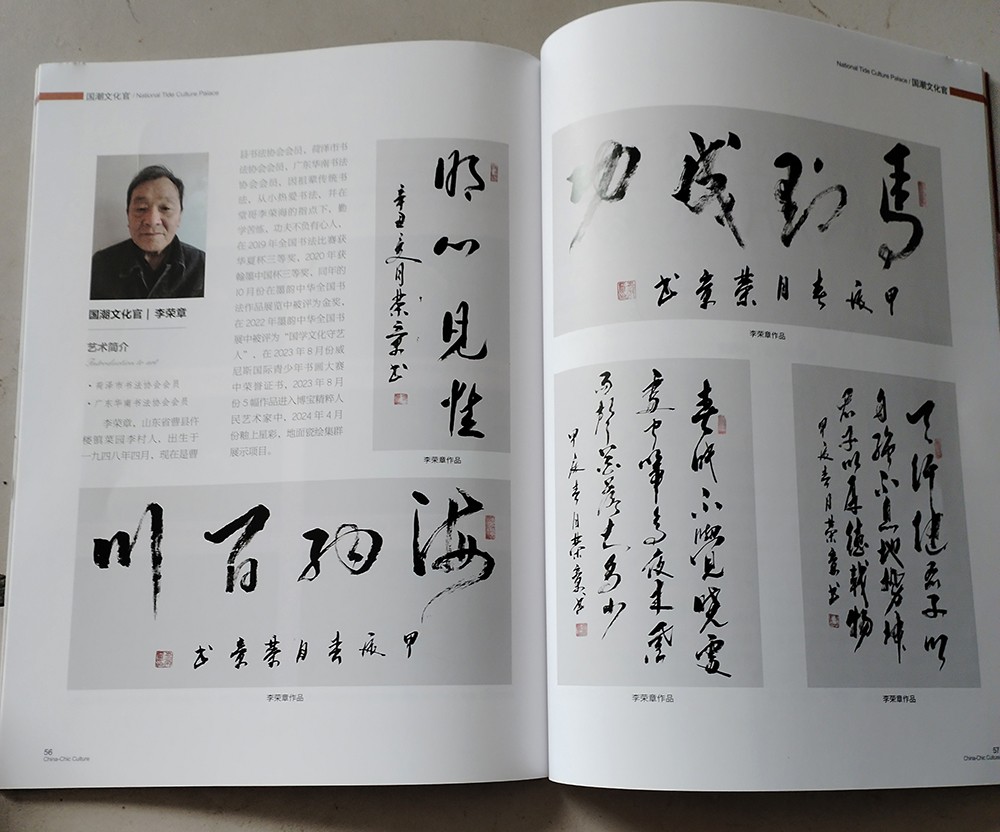 国潮文化官 / National Tide Culture Palace
国潮文化官 | 李荣章
艺术简介
Introduction to art
• 菏泽市书法协会会员
• 广东华南书法协会会员
李荣章，山东省曹县仵
楼镇菜园李村人，出生于
一九四八年四月，现在是曹
县书法协会会员，菏泽市书
法协会会员，广东华南书法
协会会员，因祖辈传统书
法，从小热爱书法，并在
堂哥李荣海的指点下，勤
学苦练，功夫不负有心人，
在2019年全国书法比赛获
华夏杯三等奖，2020年获
翰墨中国杯三等奖，同年的
10月份在墨韵中华全国书
法作品展览中被评为金奖，
在2022年墨韵中华全国书
展中被评为“国学文化守艺
人”，在2023年8月份威
尼斯国际青少年书画大赛
中荣誉证书，2023年8月
份5幅作品进入博宝精粹人
民艺术家中，2024年4月
份釉上星彩，地面瓷绘集群
展示项目。
明心见性
辛丑夏月荣章书
李荣章作品
海纳百川
甲辰春月荣章书
李荣章作品
56
China-Chic Culture
National Tide Culture Palace / 国潮文化官
马到成功
甲辰春月荣章书
李荣章作品
春眠不觉晓处
处闻啼鸟夜来风
雨声花落知多少
甲辰春月荣章书
李荣章作品
天行健君子以
自强不息地势坤
君子以厚德载物
甲辰春月荣章书
李荣章作品
57
China-Chic Culture